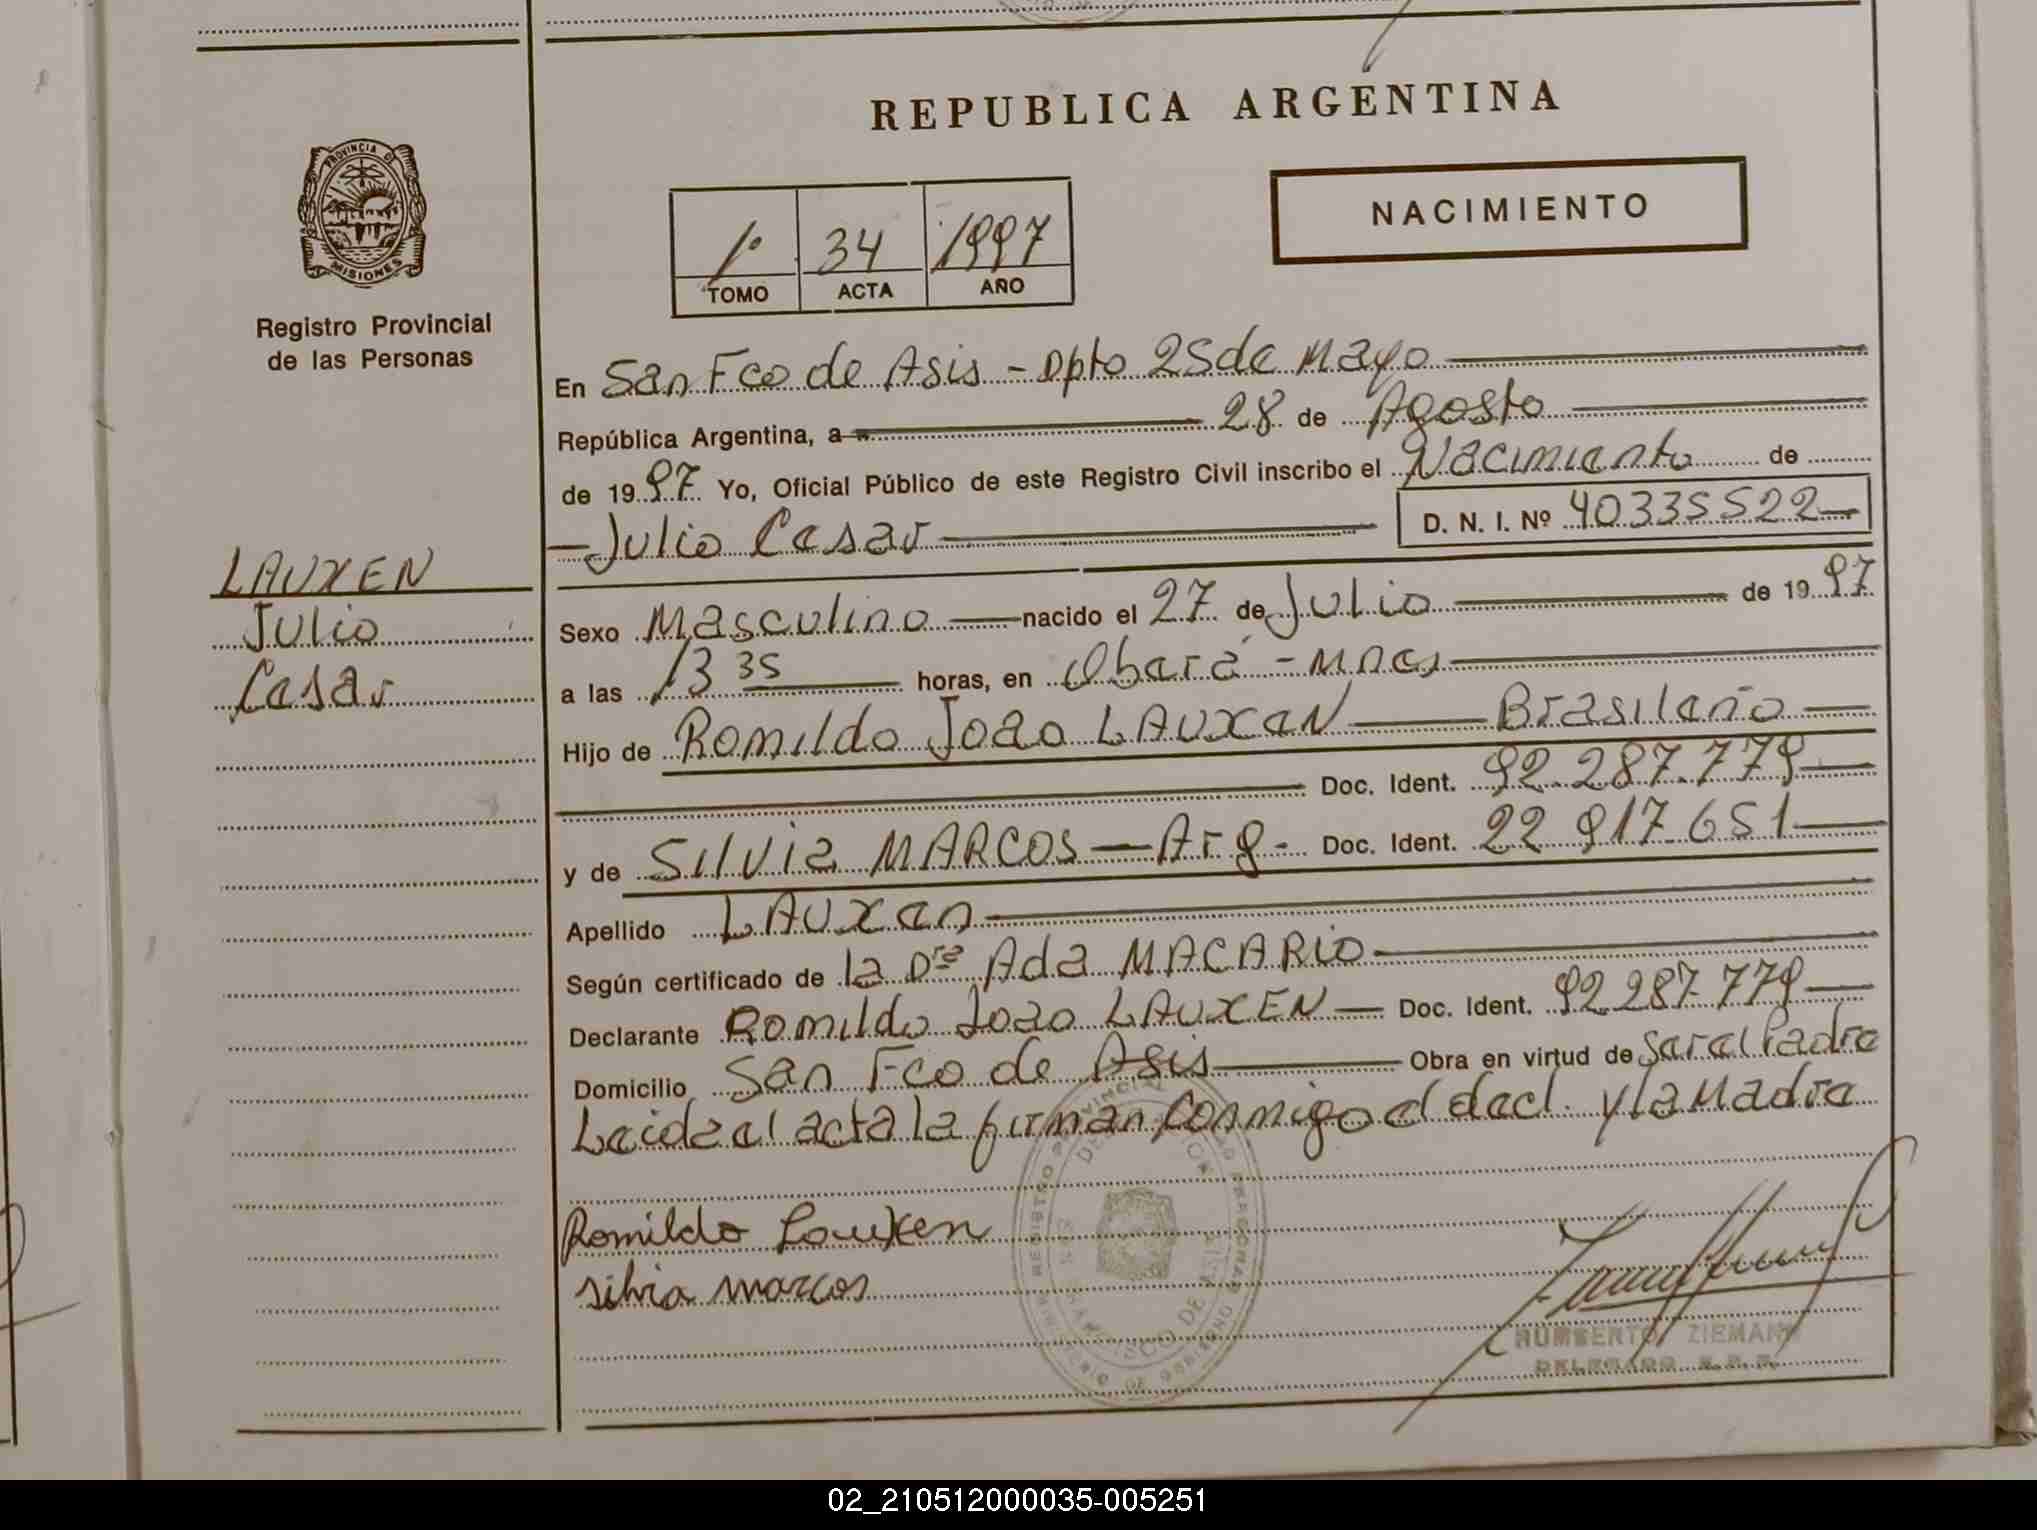 REPUBLICA ARGENTINA
PROVINCIA DE
MISIONES
Registro Provincial
de las Personas
NACIMIENTO
1º 34 1997
TOMO ACTA AÑO
En San Fco de Asis - Dpto 25 de Mayo
República Argentina, a 28 de Agosto
de 1997 Yo, Oficial Público de este Registro Civil inscribo el Nacimiento de
Julio Cesar D. N. I. Nº 40335522
LAUXEN
Julio
Cesar
Sexo Masculino nacido el 27 de Julio de 1997
a las 13 35 horas, en Obará - Mnes
Hijo de Romildo Joao LAUXEN Brasileño
Doc. Ident. 92.287.779
y de Silvia MARCOS - Arg - Doc. Ident. 22 917.651
Apellido LAUXEN
Según certificado de la Drª Ada MACARIO
Declarante Romildo Joao LAUXEN Doc. Ident. 92.287.779
Domicilio San Fco de Asis Obra en virtud de Ser el Padre
Leida el acta la firman conmigo el decl. y la Madre
Romildo Lauxen
silvia marcos
HUMBERTO ZIEMANN
DELEGADO R.P.P.
02_210512000035-005251